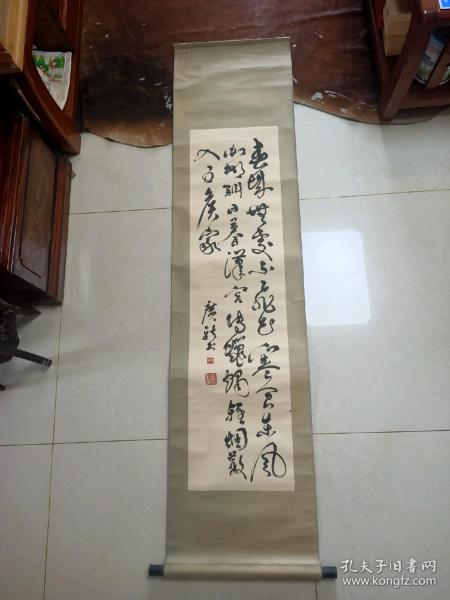 春城無處不飛花寒食東風
御柳斜日暮漢宮傳蠟燭輕烟散
入五侯家
孔夫子旧书网
www.kongfz.com